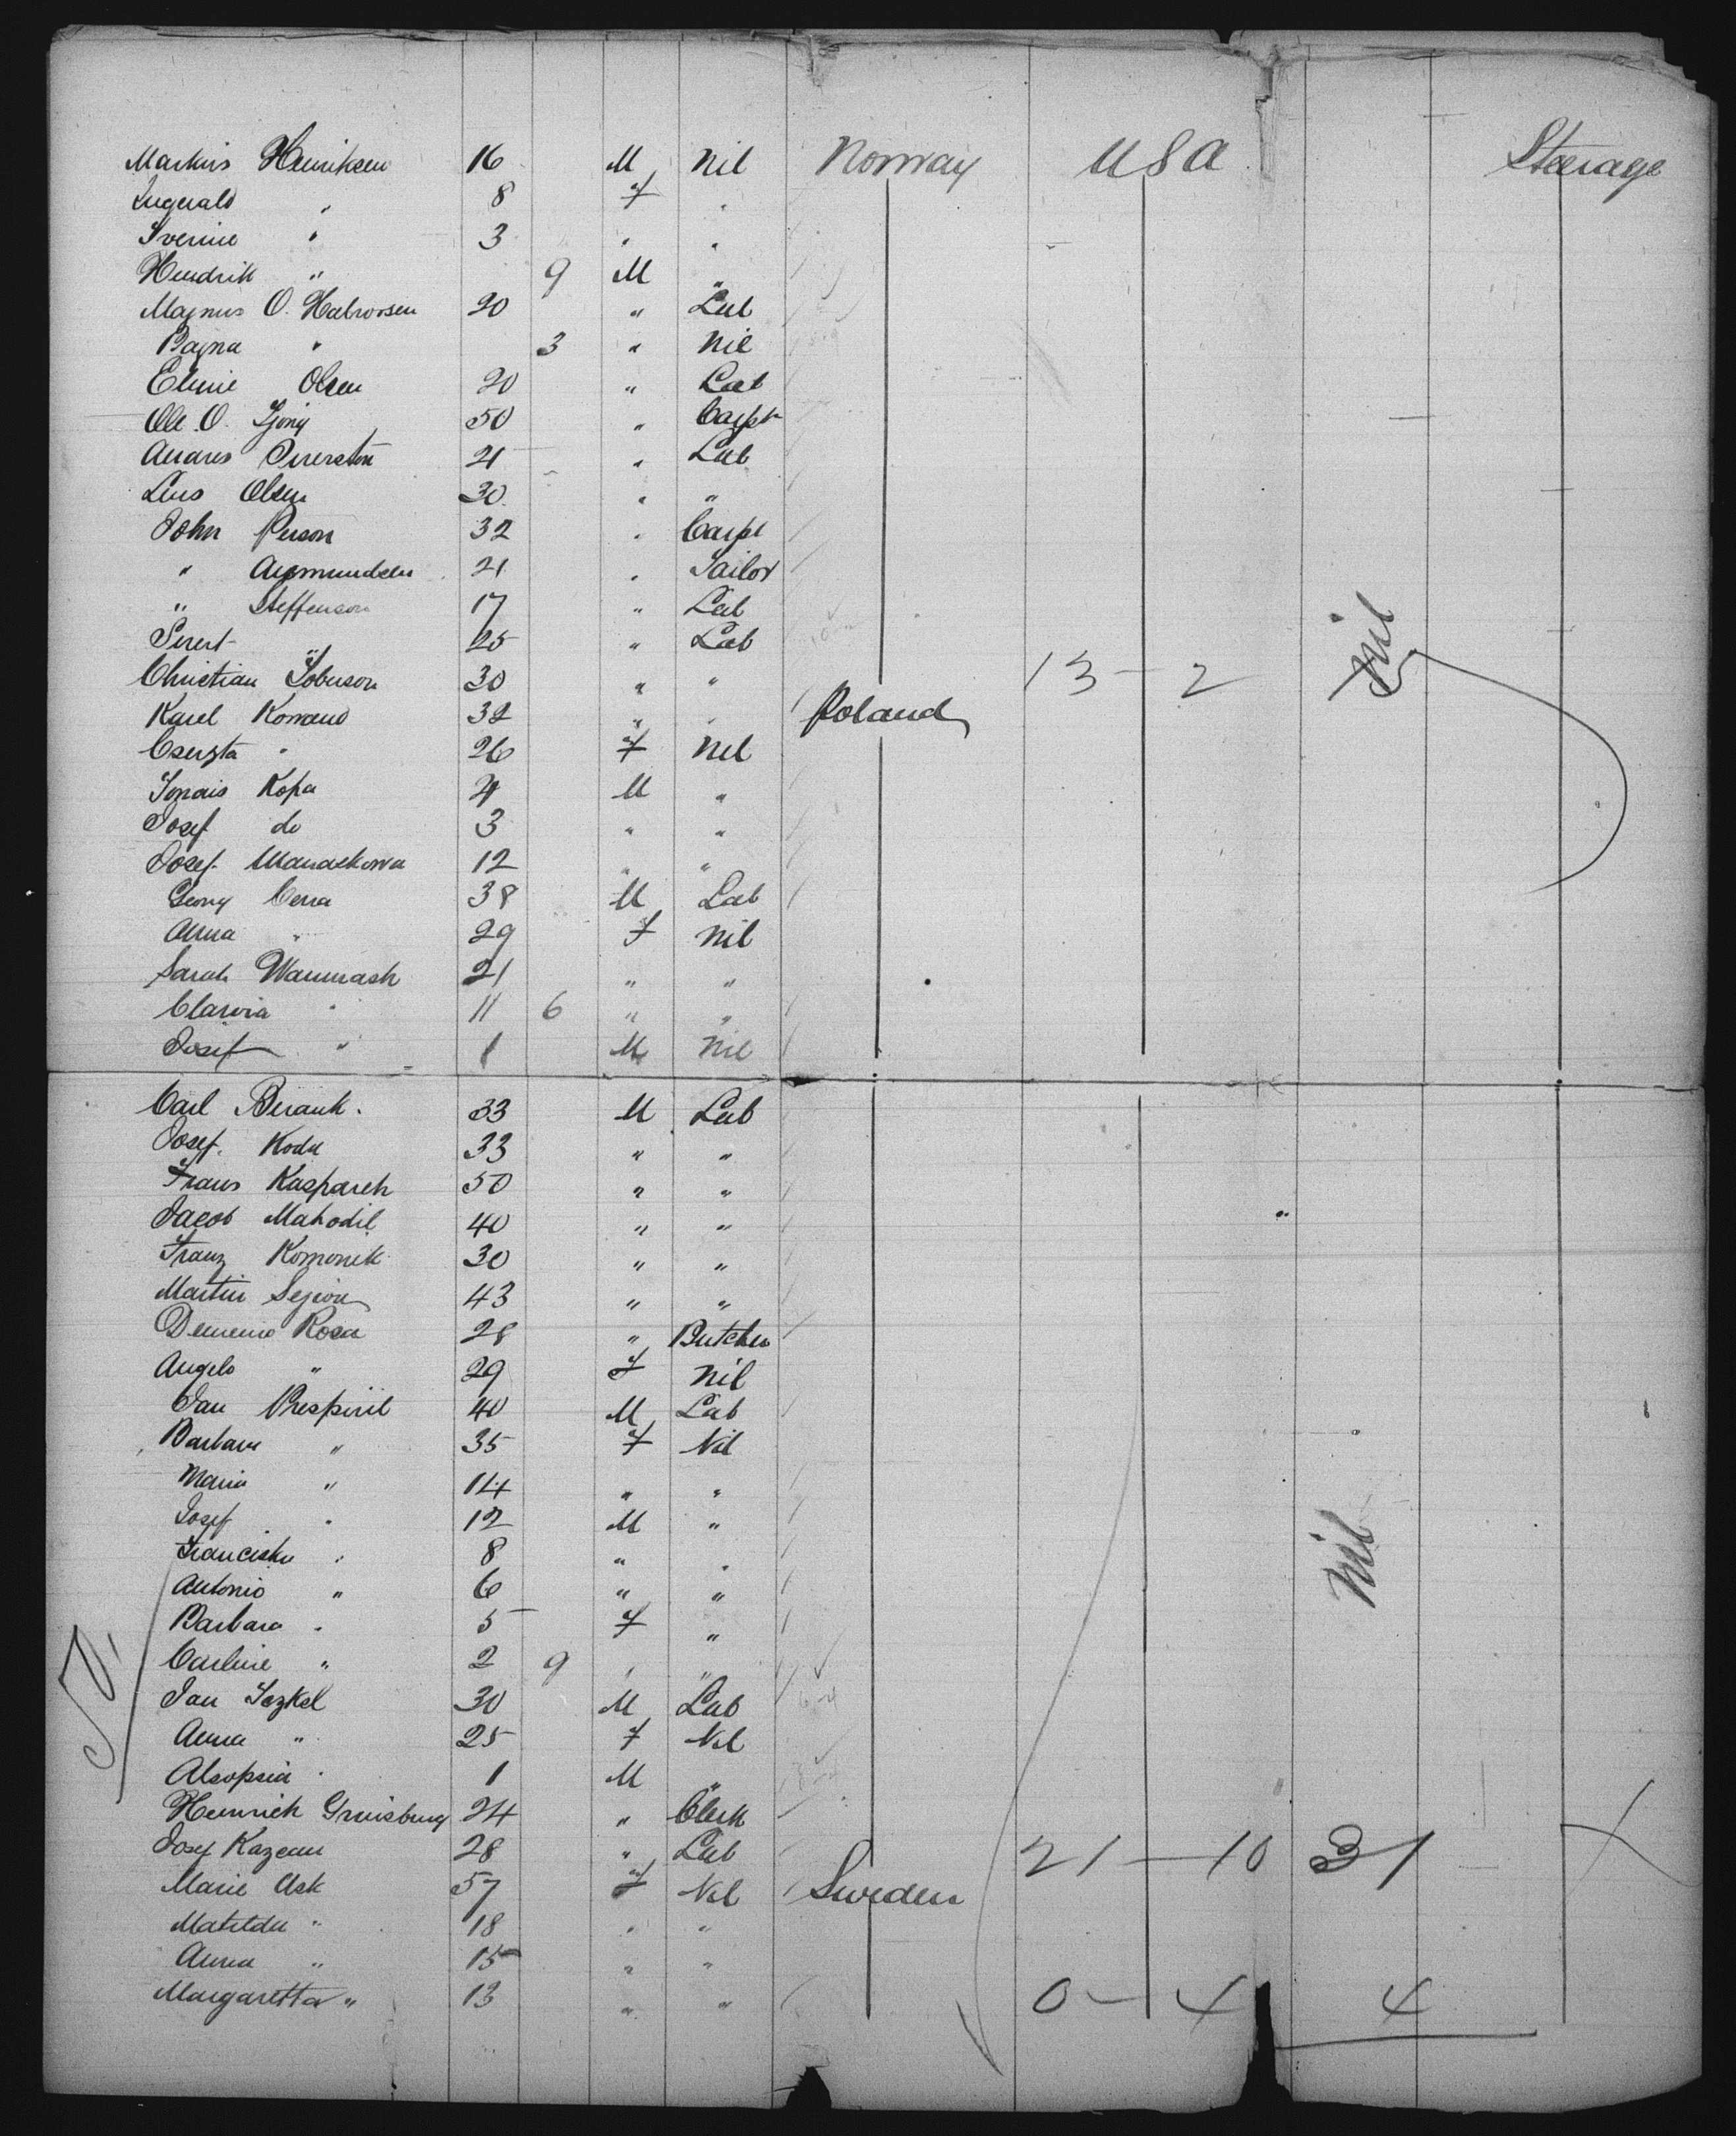 Markus Henriksen 16 M Nil Norway USA Steerage
Ingerald " 8 F "
Iverine " 3 " "
Hendrik " 9 M "
Magnus O. Halvorsen 20 " Lab
Ragna " 3 " Nil
Elmie Olsen 20 " Lab
Ole O. 50 " Carpt
21 " Lab
Lars Olsen 30 " "
John Person 32 " Carpt
" Aumundsen 21 " Sailor
" Steffenson 17 " Lab
Sivert " 25 " Lab
Christian 30 " " 13 - 2 Nil
Karel 32 " " Poland
" 26 F Nil
Kopa M "
Josef do 3 " "
Josef 12 " "
Georg Cerra 38 M Lab
Anna " 29 F Nil
Sarah Wannash 21 " "
" 11 6 " "
Josef " 1 M Nil
Carl Berank. 33 M Lab
Josef. Koda 33 " "
Frans Kasparek 50 " "
Jacob Mahodil 40 " "
Franz Komonik 30 " "
Martin 43 " "
Rosa 28 " Butcher
Angelo " 29 F Nil
Jan 40 M Lab
Barbara " 35 F Nil
Maria " 14 " "
Josef " 12 M "
Francisku " 8 " " Nil
Antonio " 6 " "
Barbara " 5 F "
Carline " 2 9 " "
Jan 30 M Lab
Anna " 25 F Nil
" 1 M "
Heinrich 24 " Clerk
Josef 28 " Lab 21 - 10 31
Marie Ask 57 F Nil Sweden
Matilda " 18 " "
Anna " 15 " "
Margaretta " 13 " " 0 - 4 4